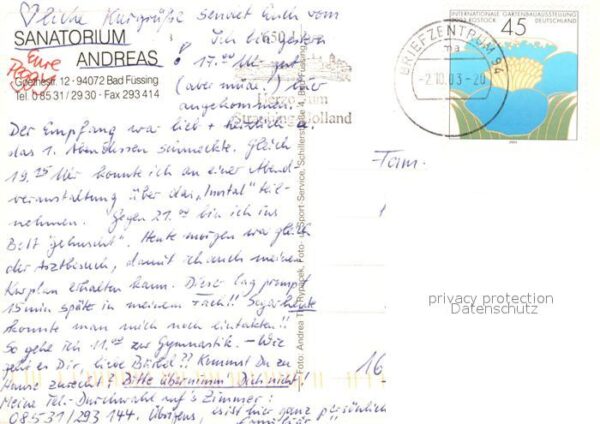 ♡liche Kurgrüße sendet Euch vom
SANATORIUM
ANDREAS
Eure
Goethestr. 12 · 94072 Bad Füssing
Tel. 0 85 31 / 29 30 - Fax 293 414
Ich bin gestern
17.00 Uhr gut
(aber müde!) hier
angekommen.
Der Empfang war lieb + herzlich u.
das 1. Abendessen schmeckte. Gleich
19.15 Uhr konnte ich an einer Abend-
veranstaltung über das "Inntal" teil-
nehmen. Gegen 21.00 bin ich ins
Bett "gehuscht". Heute morgen war gleich
der Arztbesuch, damit ich auch meinen
Kurplan erhalten kann. Dieser lag prompt
15 min später in meinem Fach!! Sogar heute
konnte man mich noch eintakten!!
So gehe ich 11.00 zur Gymnastik. - Wie
geht es Dir, liebe Bärbel?? Kommst Du zu
Hause zurecht? Bitte übernimm Dich nicht!
Meine Tel.-Durchwahl auf's Zimmer:
08531/293 144. Übrigens, es ist hier ganz persönlich
familiär
Foto: Andrea Th. Rypacek, Foto- Sport-Service, Schillerstraße 4, Bad Füssing
Straubing Bolland
BRIEFZENTRUM 94
ma
-2.10.03-20
INTERNATIONALE GARTENBAUAUSSTELLUNG
2003 ROSTOCK
DEUTSCHLAND
45
2003
Fam.
16
privacy protection
Datenschutz